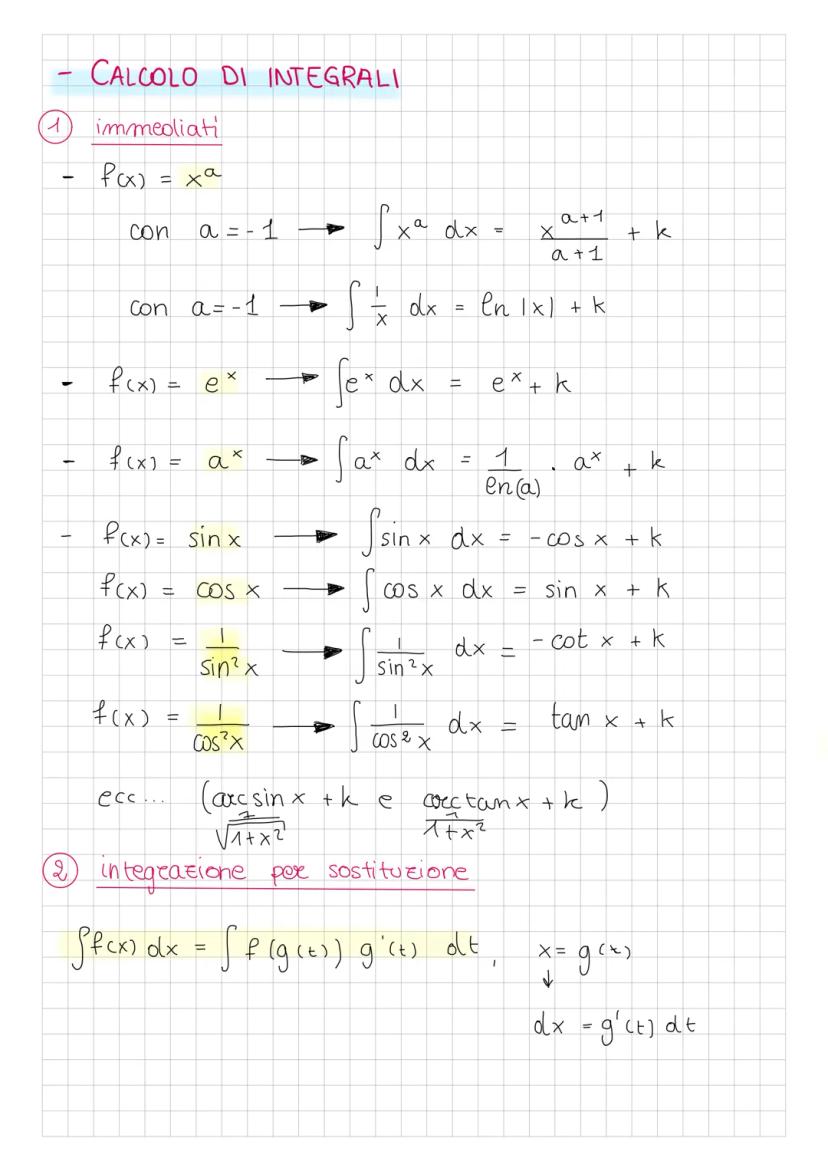 - CALCOLO DI INTEGRALI
① immediati
- f(x) = xᵃ
con a = -1 → ∫ xᵃ dx = x^(a+1)/(a+1) + k
con a = -1 → ∫ 1/x dx = ln |x| + k
- f(x) = eˣ → ∫ eˣ dx = eˣ + k
- f(x) = aˣ → ∫ aˣ dx = 1/ln(a) · aˣ + k
- f(x) = sin x → ∫ sin x dx = - cos x + k
f(x) = cos x → ∫ cos x dx = sin x + k
f(x) = 1/sin²x → ∫ 1/sin²x dx = - cot x + k
f(x) = 1/cos²x → ∫ 1/cos²x dx = tan x + k
ecc... (arcsin x + k e arctan x + k)
1/√(1+x²) 1/(1+x²)
② integrazione per sostituzione
∫ f(x) dx = ∫ f(g(t)) g'(t) dt, x = g(t)
↓
dx = g'(t) dt